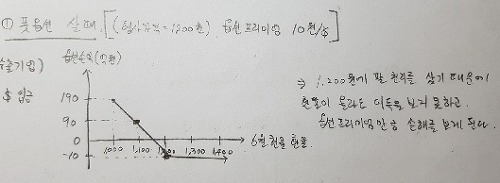 ① 풋옵션 살때, [(행사가격 = 1200원) 옵션프리미엄 10원/$]
수출기업)
옵션손익(억원)
$ 입금
190
90
0
-10
1,000 1,100 1,200 1,300 1,400
6월 현물 환율
⇒ 1,200원에 팔 권리를 샀기 때문에
환율이 올라도 이득을 보지 못하고,
옵션프리미엄만큼 손해를 보게 된다.